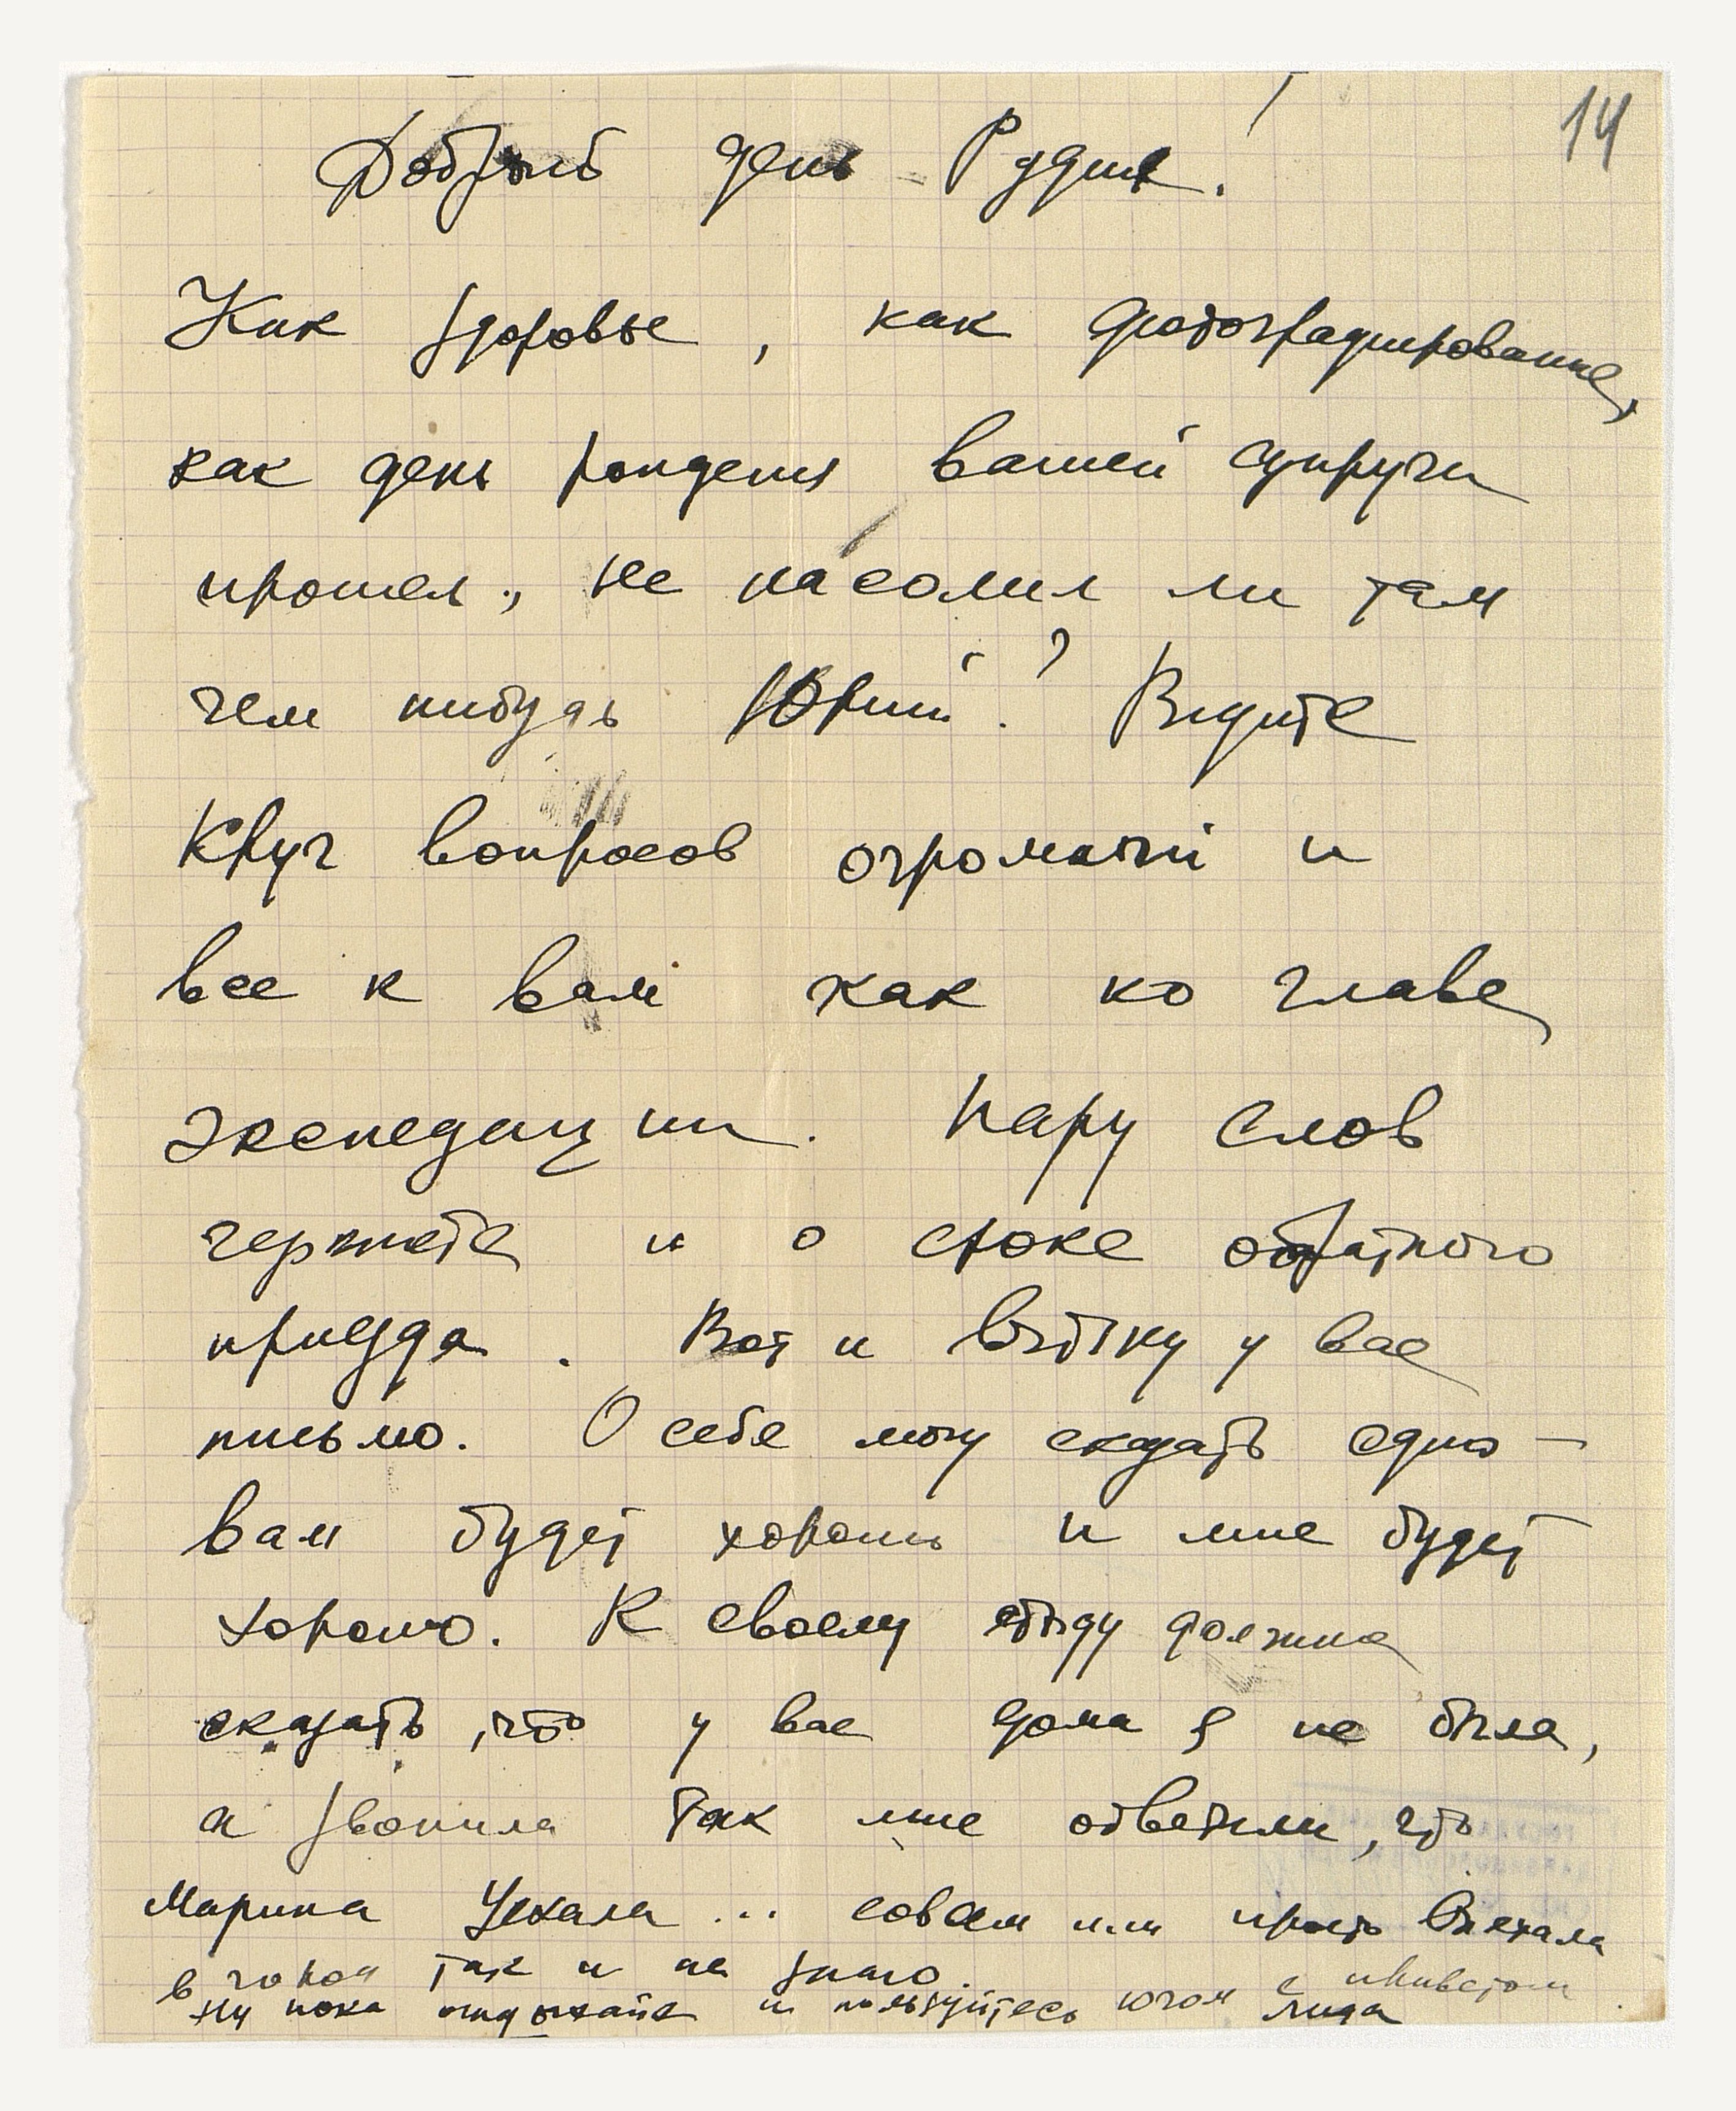 14
Добрый день Рудик!
Как здоровье, как фотографирование,
как день рождения вашей супруги
прошел, не насолил ли там
чем нибудь Юрий? Видите
Круг вопросов огромный и
все к вам как ко главе
экспедиции. Пару слов
черкните и о сроке обратного
приезда. Вот и вытяну у вас
письмо. О себе могу сказать одно —
вам будет хорошо и мне будет
хорошо. К своему стыду должна
сказать, что у вас дома я не была,
а звонила так мне ответили, что
Марина уехала... совсем или просто выехала
в город так и не знаю.
Ну пока отдыхайте и пользуйтесь югом с приветом
Лида